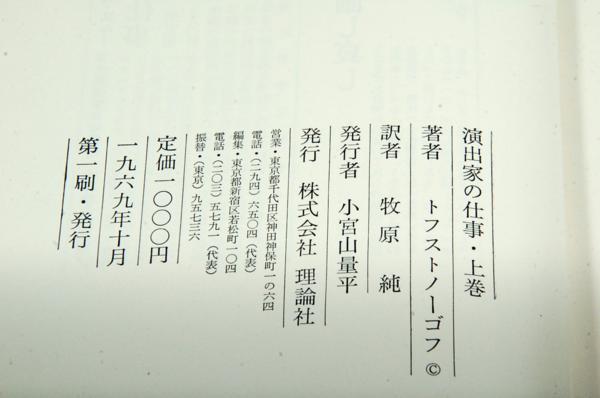 演出家の仕事・上巻
著者 トフストノーゴフ ©
訳者 牧原 純
発行者 小宮山量平
発行 株式会社 理論社
営業・東京都千代田区神田神保町一の六四
電話・(二九四)六五〇四(代表)
編集・東京都新宿区若松町一〇四
電話・(二〇三)五七九一(代表)
振替・(東京)九五七三六
定価一〇〇〇円
一九六九年十月
第一刷・発行